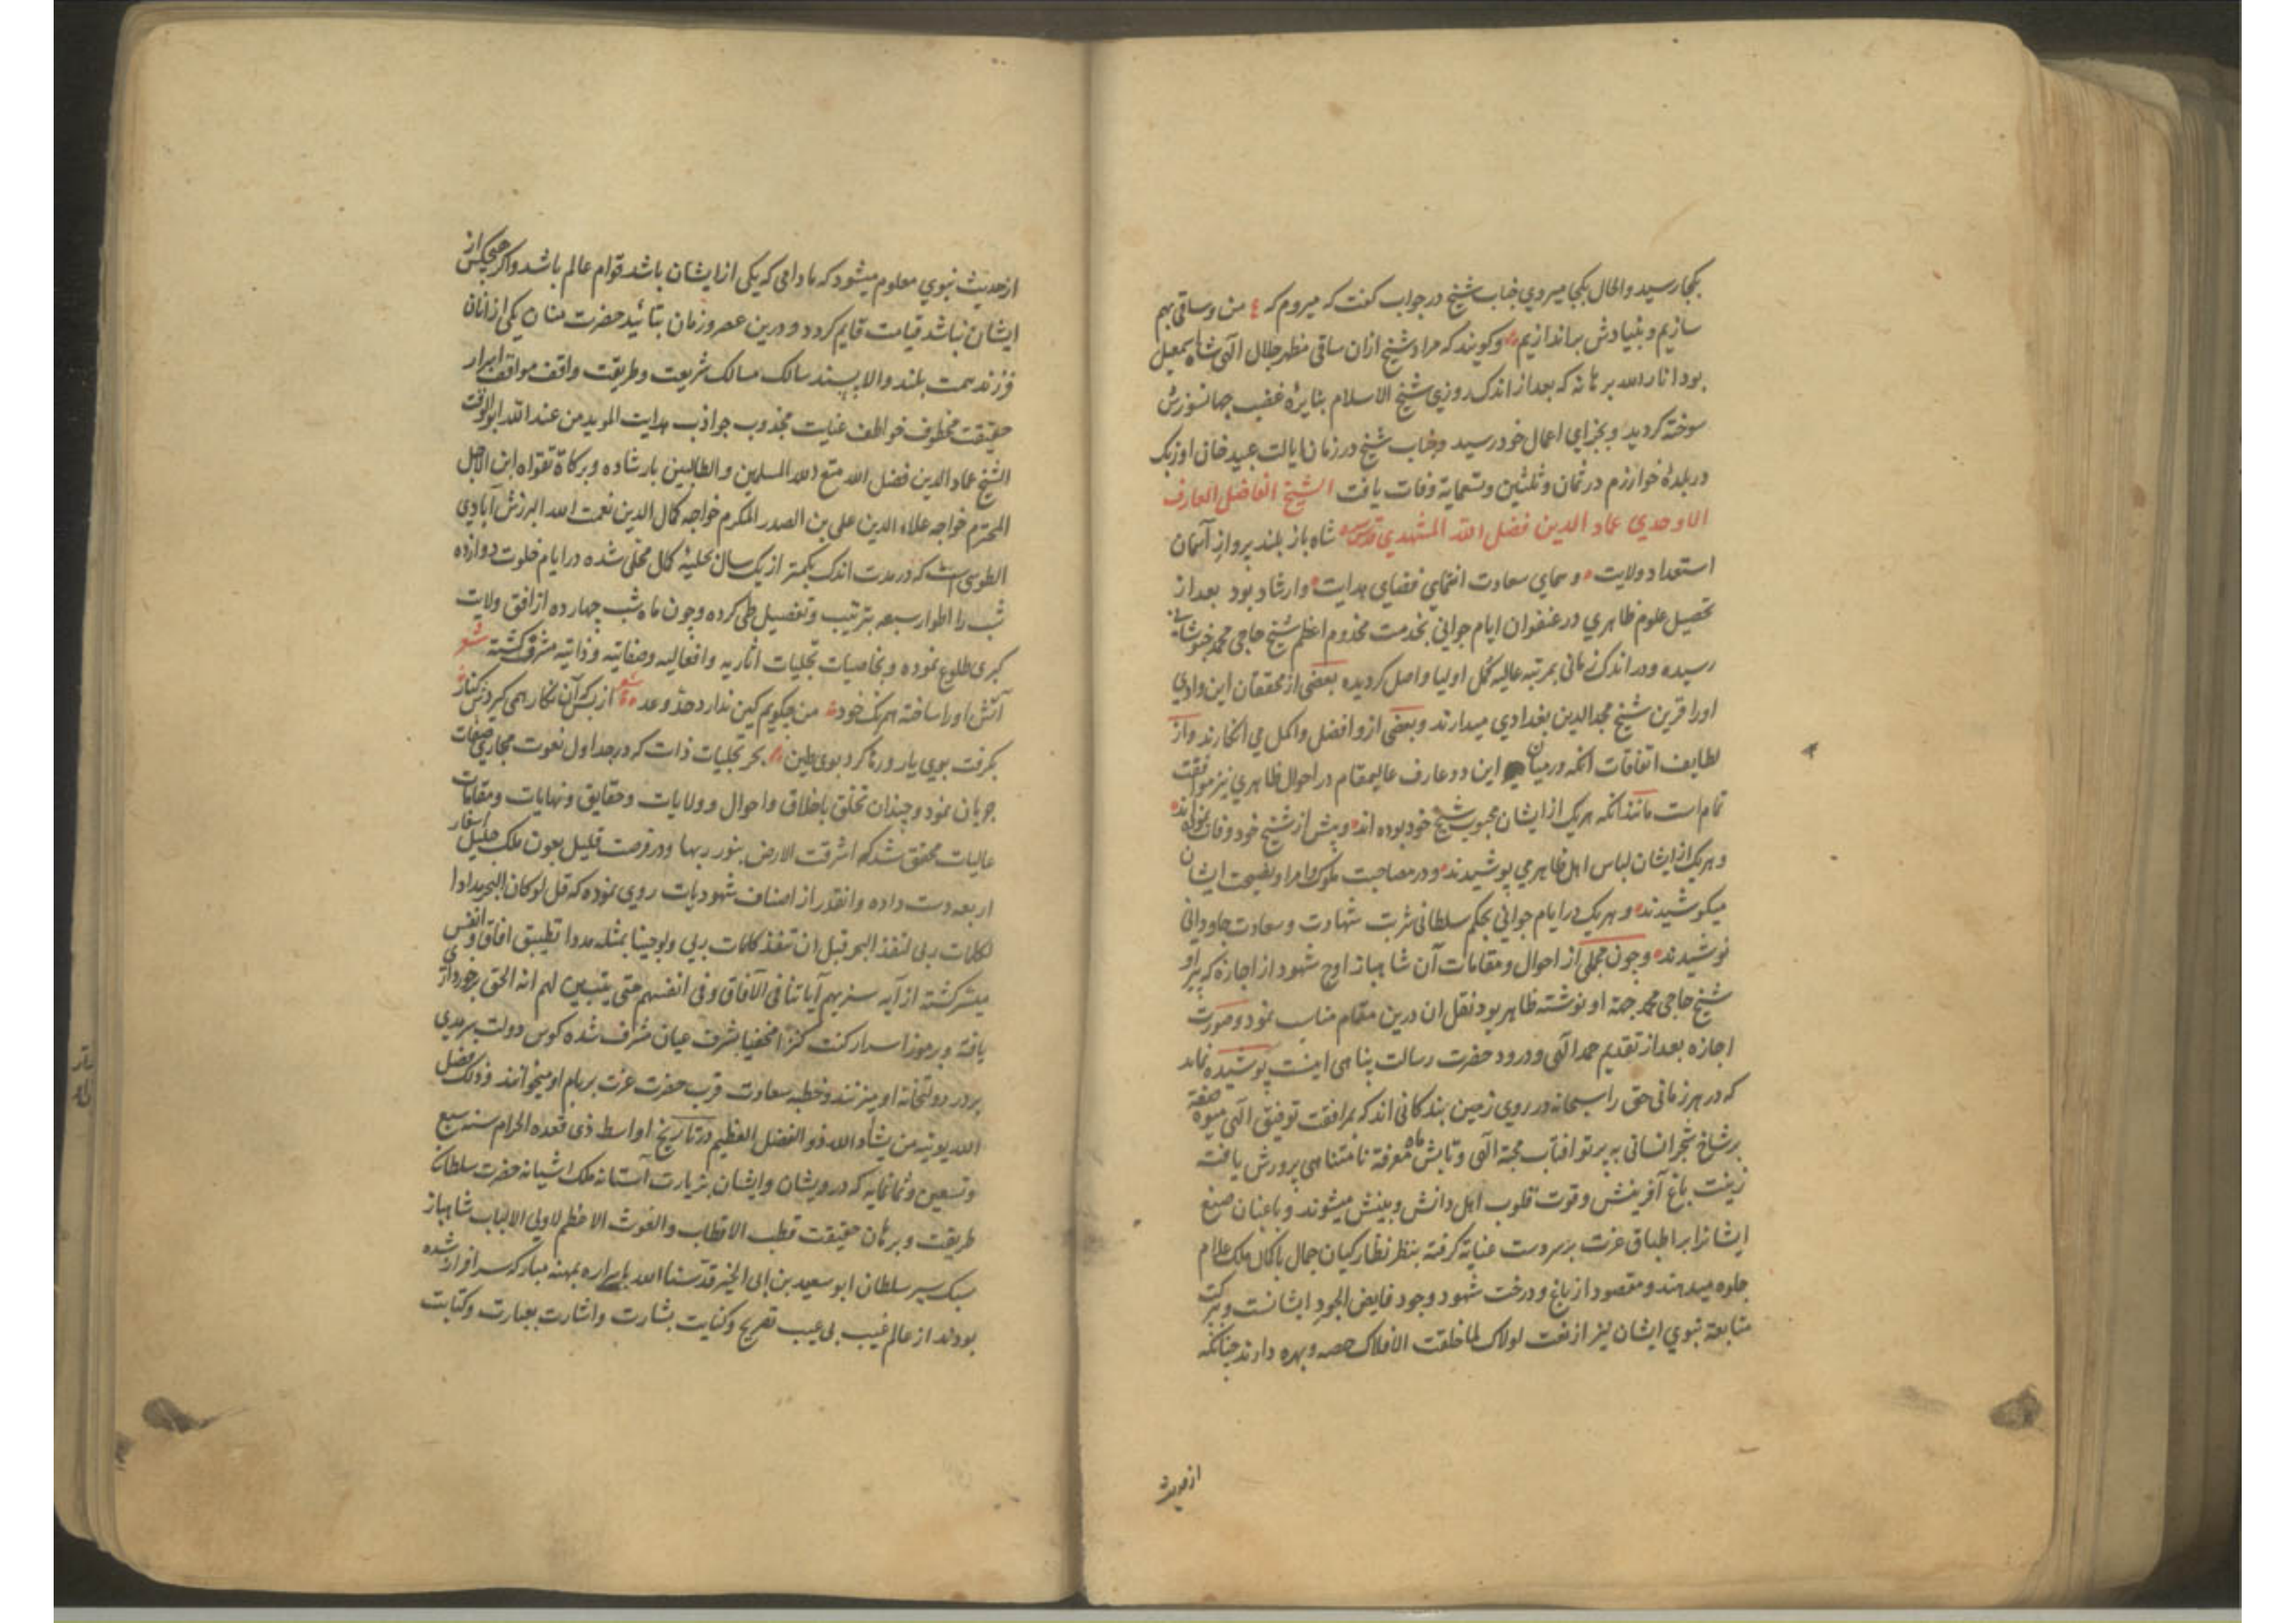 بکجا رسید والحال بکجا میروی جناب شیخ در جواب گفت که میروم که ع من وساقی بهم
سازیم و بنیادش براندازیم وکویند که مراد شیخ ازان ساقی مظهر جلال الهی شاه اسمعیل
بود انار الله برهانه که بعد از اندک روزی شیخ الاسلام بنایرهٔ غضب جهانسوزش
سوخته کردید و بجزای اعمال خود رسید وجناب شیخ در زمان ایالت عبید خان اوزبک
در بلدهٔ خوارزم در ثمان وثلثین وتسعمایة وفات یافت الشیخ الفاضل العارف
الاوحدی عماد الدین فضل الله المشهدی قدس سره شاه باز بلند پرواز آسمان
استعداد ولایت وسمای سعادت انتمای فضای هدایت وارشاد بود بعد از
تحصیل علوم ظاهری در عنفوان ایام جوانی بخدمت مخدوم اعظم شیخ حاجی محمد خبوشانی
رسیده ودر اندک زمانی بمرتبه عالیه کمل اولیا واصل کردیده بعضی از محققان این وادی
اورا قرین شیخ مجد الدین بغدادی میدارند وبعضی ازو افضل واکمل می انکارند واز
لطایف اتفاقات انکه درمیان این دو عارف عالیمقام در احوال ظاهری نیز موافقت
تمام است مانند انکه هریک از ایشان محبوب شیخ خود بوده اند وپیش از شیخ خود وفات نموده اند
وهریک از ایشان لباس اهل ظاهر می پوشیدند ودر مصاحبت ملوک وامرا ونصیحت ایشان
میکوشیدند وهریک در ایام جوانی بحکم سلطانی شربت شهادت وسعادت جاودانی
نوشیدند وچون مجملی از احوال ومقامات آن شاهباز اوج شهود از اجازه که پیر او
شیخ حاجی محمد جهة او نوشته ظاهر بود نقل ان درین مقام مناسب نمود وصورت
اجازه بعد از تقدیم حمد الهی ودرود حضرت رسالت پناهی اینست پوشیده نماند
که در هر زمانی حق را سبحانه در روی زمین بندکانی اند که بمرافقت توفیق الهی میوه صفة
بر شاخ شجر انسانی به پرتو افتاب محبة الهی وتابش ماه معرفة نامتناهی پرورش یافته
زینت باغ آفرینش وقوت قلوب اهل دانش وبینش میشوند وباغبان صنع
ایشانرا بر اطباق عزت بر سر دست عنایة کرفته بنظر نظارکیان جمال باکمال ملک علام
جلوه میدهند ومقصود از باغ ودرخت شهود وجود فایض الجود ایشانست وببرکت
متابعة نبوی ایشان نیز از نعت لولاک لما خلقت الافلاک حصه وبهره دارند چنانکه
از حدیث
از حدیث نبوی معلوم میشود که مادامی که یکی از ایشان باشد قوام عالم باشد واکر هیچکس از
ایشان نباشد قیامت قایم کردد ودرین عصر وزمان بتائید حضرت منان یکی از انان
فرزند همت بلند والا پسند سالک مسالک شریعت وطریقت واقف مواقف ابرار
حقیقت مخطوف خواطف عنایت مجذوب جواذب هدایت الموید من عند الله ابو الوقت
الشیخ عماد الدین فضل الله متع الله المسلمین والطالبین بارشاده وبرکاة تقواه ابن الاجل
المحترم خواجه علاء الدین علی بن الصدر المکرم خواجه کمال الدین نعمت الله البرزش آبادی
الطوسی است که در مدت اندک بکمتر از یک سال بحلیهٔ کمال محلی شده در ایام خلوت دوازده
شب را اطوار سبعه بترتیب وتفصیل طی کرده وچون ماه شب چهارده از افق ولایت
کبری طلوع نموده وبخاصیات تجلیات اثاریه وافعالیه وصفاتیه وذاتیه مشرف کشته شعر
آتش اورا ساخته همرنک خود من چکویم کین ندارد حد وعد از بس که آن نکار همی کیردش کنار
بکرفت بوی یار ورها کرد بوی طین بحر تجلیات ذات که در جداول نعوت مجاری صفات
جریان نمود وچندان تخلق باخلاق واحوال وولایات وحقایق ونهایات ومقامات
عالیات محقق شد که اشرقت الارض بنور ربها ودر فرصت قلیل بعون ملک جلیل اسفار
اربعه دست داده وانقدر از اصناف شهودیات روی نموده که قل لو کان البحر مدادا
لکلمات ربی لنفد البحر قبل ان تنفد کلمات ربی ولو جینا بمثله مددا تطبیق افاق وانفس
میسر کشته از آیه سنریهم آیاتنا فی الآفاق وفی انفسهم حتی یتبین لهم انه الحق برخورداری
یافته وبرموز اسرار کنت کنزا مخفیا بشرف عیان مشرف شده کوس دولت سرمدی
بر در دولتخانه او میزنند وخطبه سعادت قرب حضرت عزت بر بام او میخوانند وذلک فضل
الله یوتیه من یشاء الله ذو الفضل العظیم در تاریخ اواسط ذی قعده الحرام سنه سبع
وتسعین وثمانمایه که درویشان وایشان بزیارت آستانه ملک اشیانه حضرت سلطان
طریقت وبرهان حقیقت قطب الاقطاب والغوث الاعظم لاولی الالباب شاهباز
سبک سیر سلطان ابو سعید بن ابی الخیر قدسنا الله باسراره بمهنه مبارکه سرافراز شده
بودند از عالم غیب بی عیب تصریح وکنایت بشارت واشارت بعبارت وکتابت